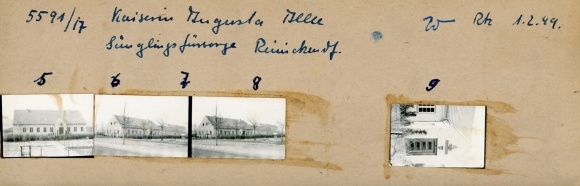 5591/17 Kaiserin Augusta Allee W Rh 1.2.49.
Säuglingsfürsorge Reinickendf.
5 6 7 8 9